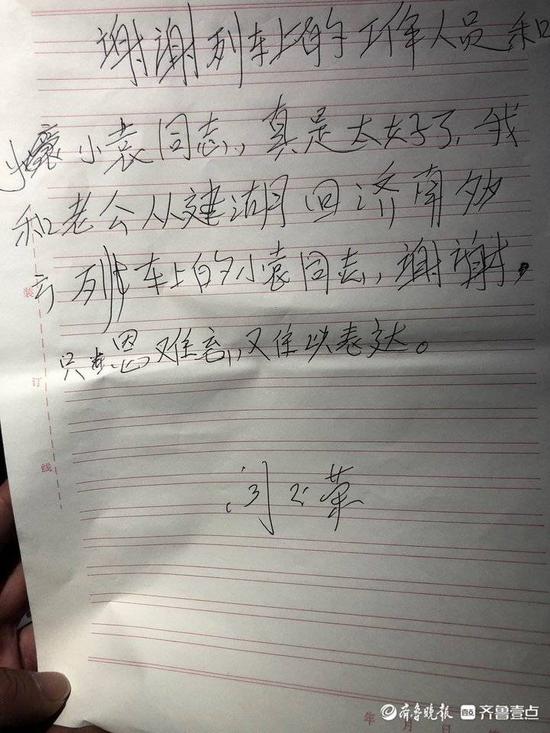 谢谢列车上的工作人员和
小袁同志,真是太好了,我
和老公从建湖回济南多
亏列车上的小袁同志,谢谢。
恩难忘,又难以表达。
装
订
线
年 月 日
齐鲁晚报 齐鲁壹点